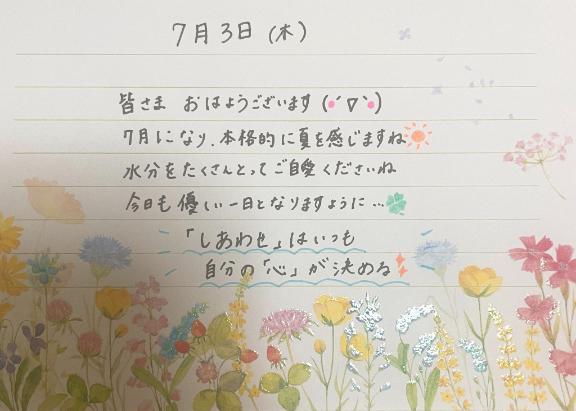 7月3日(木)
皆さま おはようございます(•´∇`•)
7月になり、本格的に夏を感じますね
水分をたくさんとってご自愛くださいね
今日も優しい一日となりますように…
「しあわせ」はいつも
自分の「心」が決める